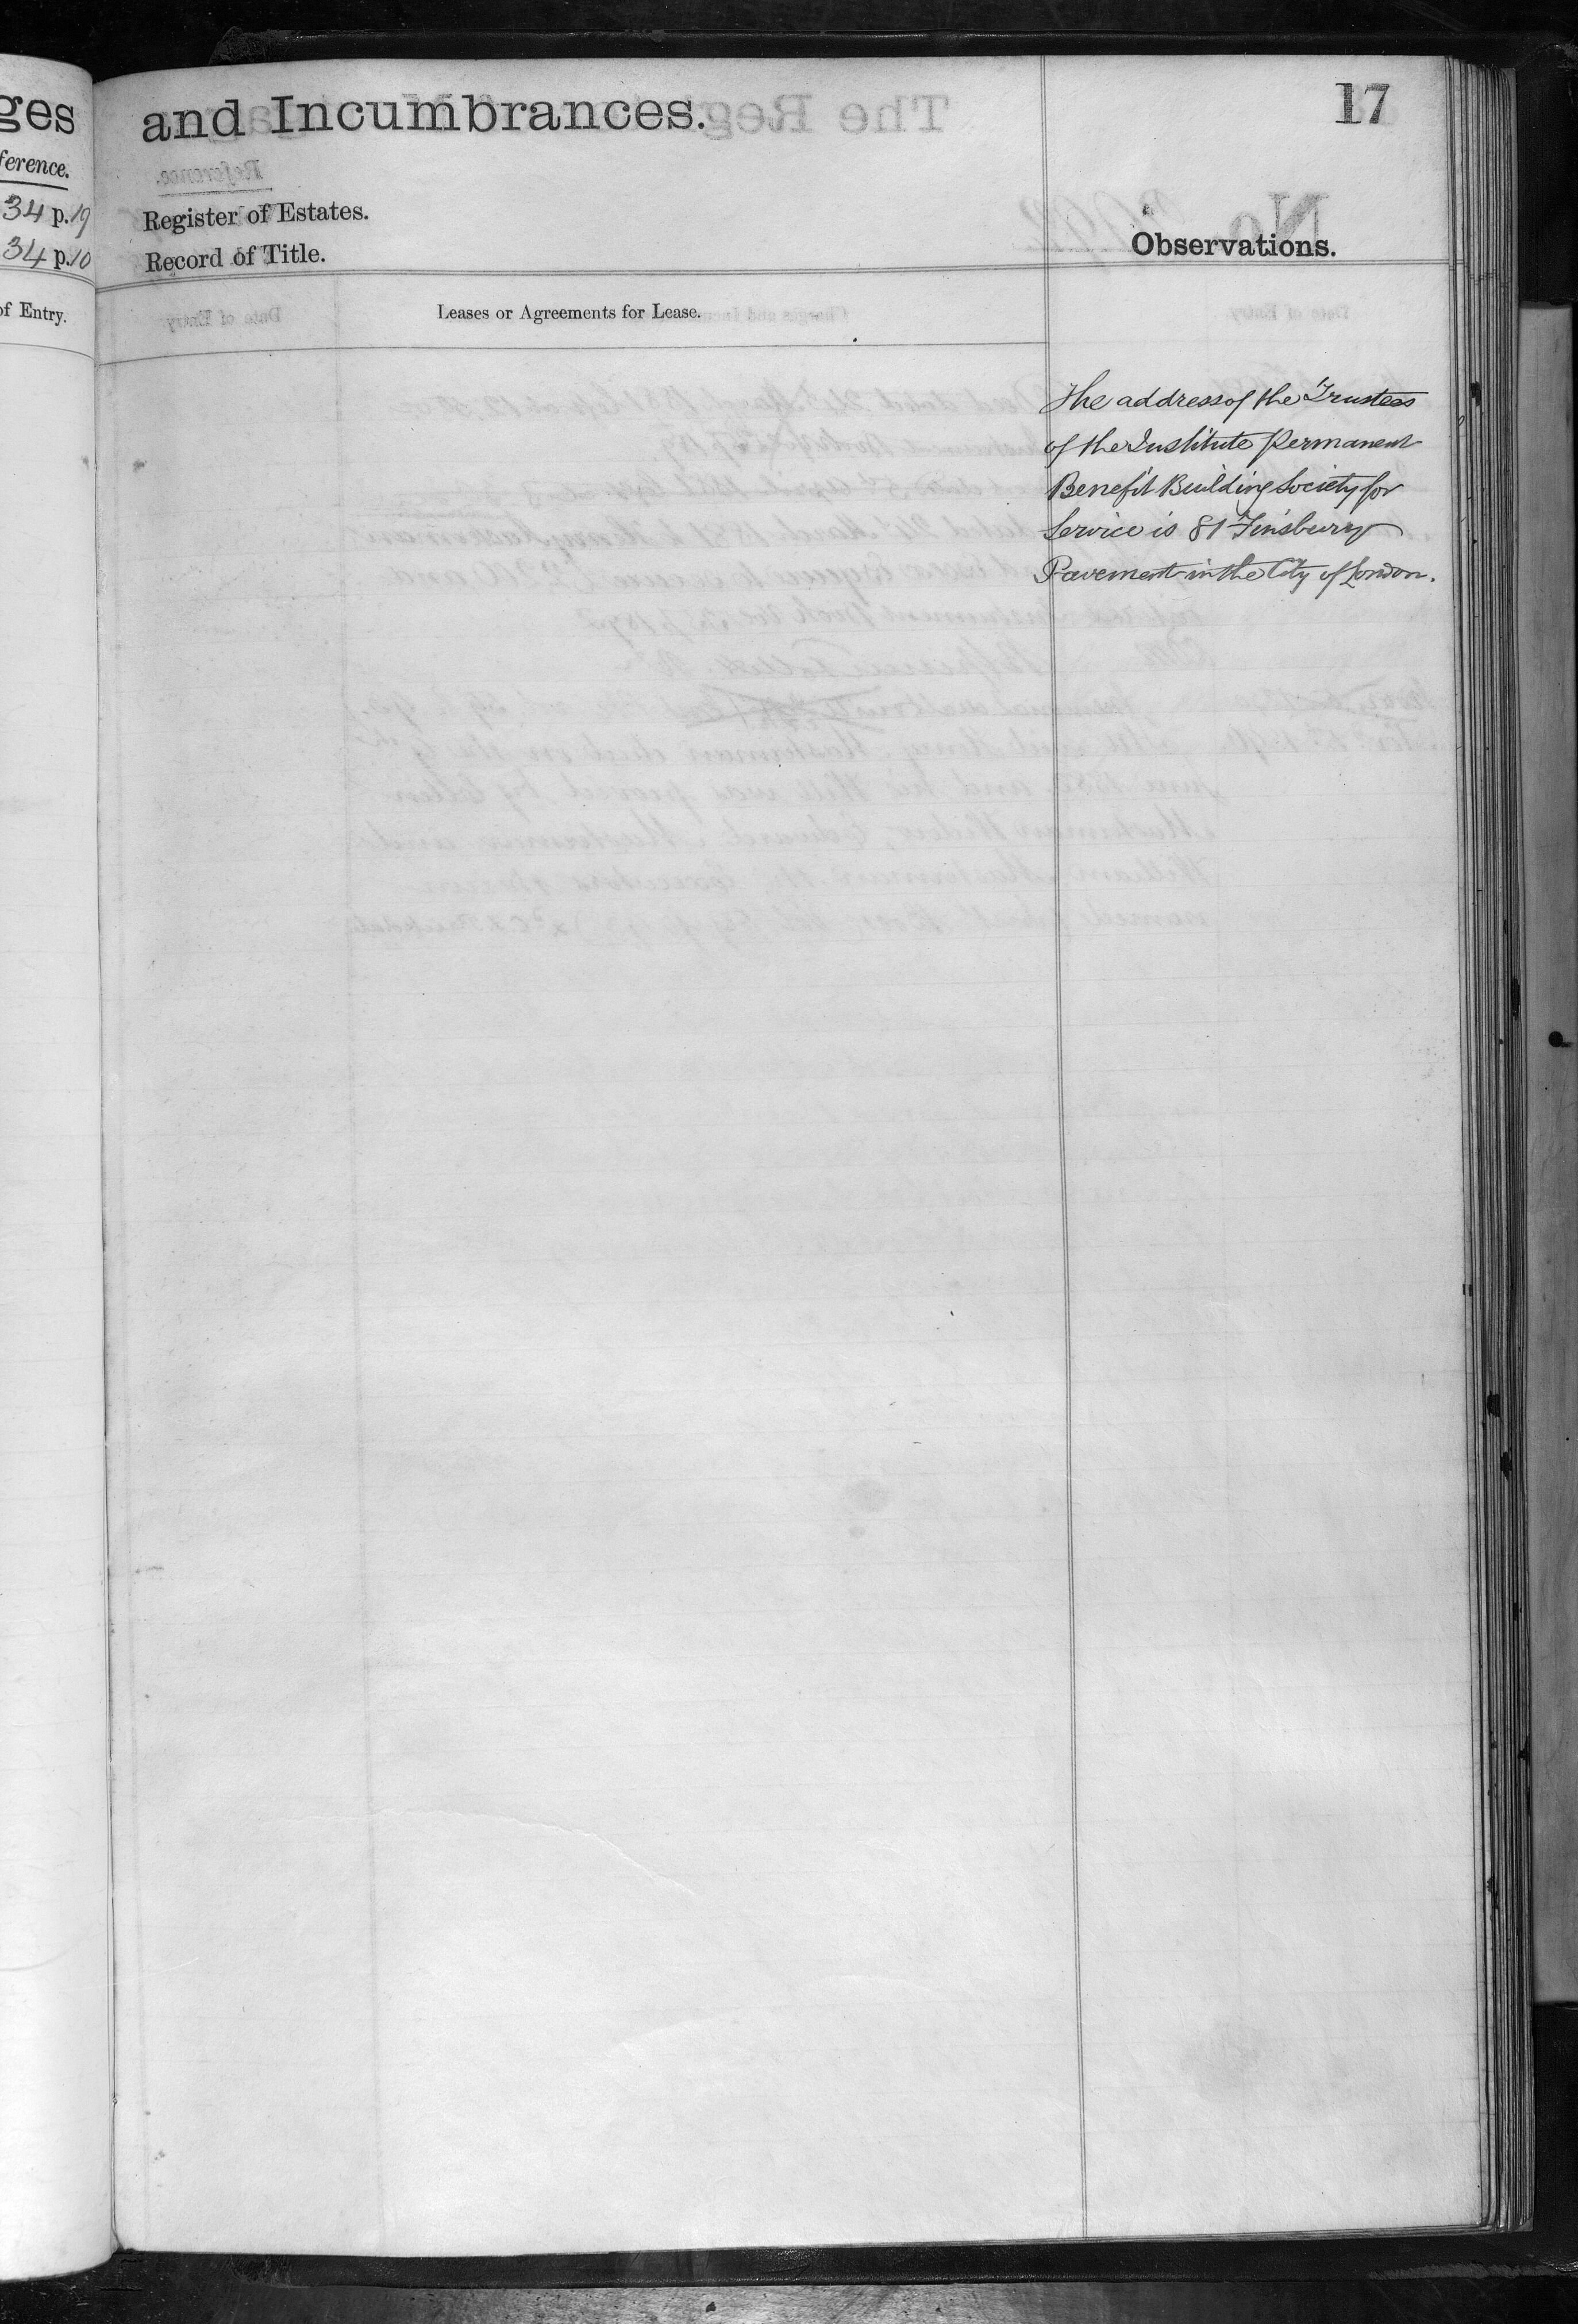 ges
ference.
34 p. 19
34 p. 10
of Entry.
and Incumbrances.
17
Register of Estates.
Record of Title.
Observations.
Leases or Agreements for Lease.
The address of the Trustees
of the Institute Permanent
Benefit Building Society for
Service is 81 Finsbury
Pavement in the City of London.